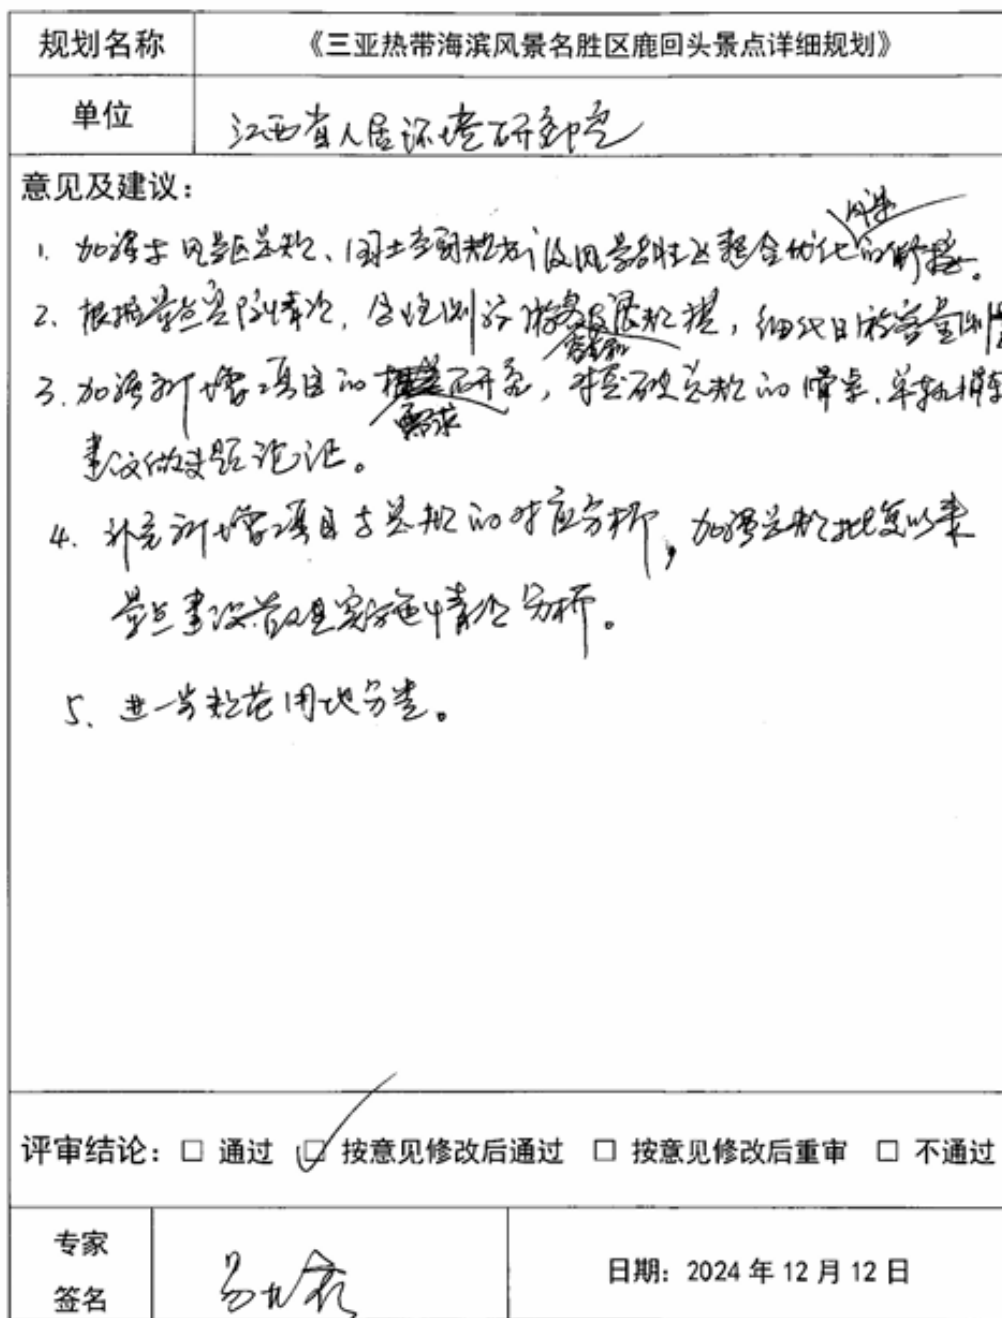 规划名称 《三亚热带海滨风景名胜区鹿回头景点详细规划》
单位 江西省人居环境研究院
意见及建议：
1. 加强与风景区总规、国土空间规划及风景名胜区整合优化的衔接。
2. 根据景点实际情况，合理测算游客规模，细化日游客量
3. 加强新增项目的需求研究，对突破总规的滑索、单轨滑车
建议做专题论证。
4. 补充新增项目与总规的对应分析，加强总规批复以来
景点建设实施情况分析。
5. 进一步规范用地分类。
评审结论：□ 通过 □ 按意见修改后通过 □ 按意见修改后重审 □ 不通过
专家
签名
日期：2024 年 12 月 12 日